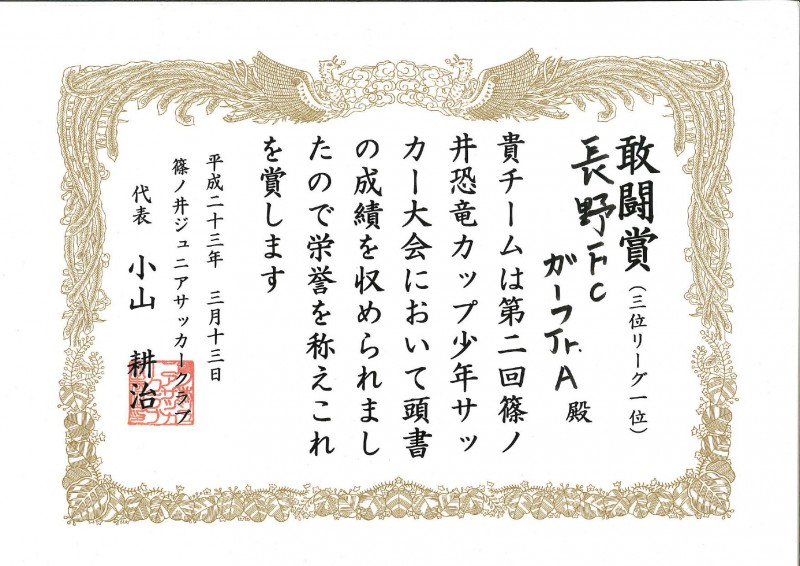 敢闘賞(三位リーグ一位)
長野FC
ガーフJr.A 殿
貴チームは第二回篠ノ
井恐竜カップ少年サッ
カー大会において頭書
の成績を収められまし
たので栄誉を称えこれ
を賞します
平成二十三年 三月十三日
篠ノ井ジュニアサッカークラブ
代表 小山 耕治